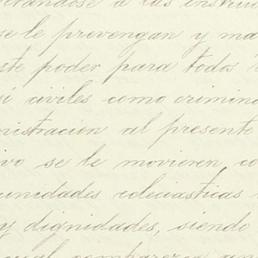 a las instruc
se le prevengan y ma
este poder para todos
i civiles como crimina
nistracion al presente
ivo se le movieren, co
unidades eclesiasticas
y dignidades, siendo